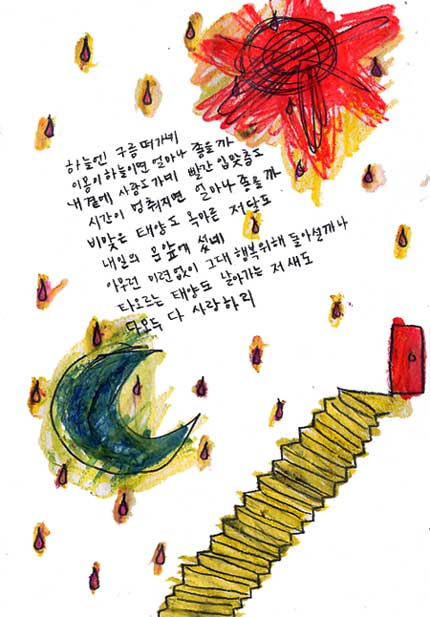 하늘엔 구름 떠가네
이몸이 하늘이면 얼마나 좋을까
내 곁에 사랑도 가네 빨간 입맞춤도
시간이 멈춰지면 얼마나 좋을까
비맞은 태양도 목마른 저달도
내일의 문앞에 섰네
아무런 미련없이 그대 행복위해 돌아설까나
타오르는 태양도 날아가는 저 새도
다모두 다 사랑하리